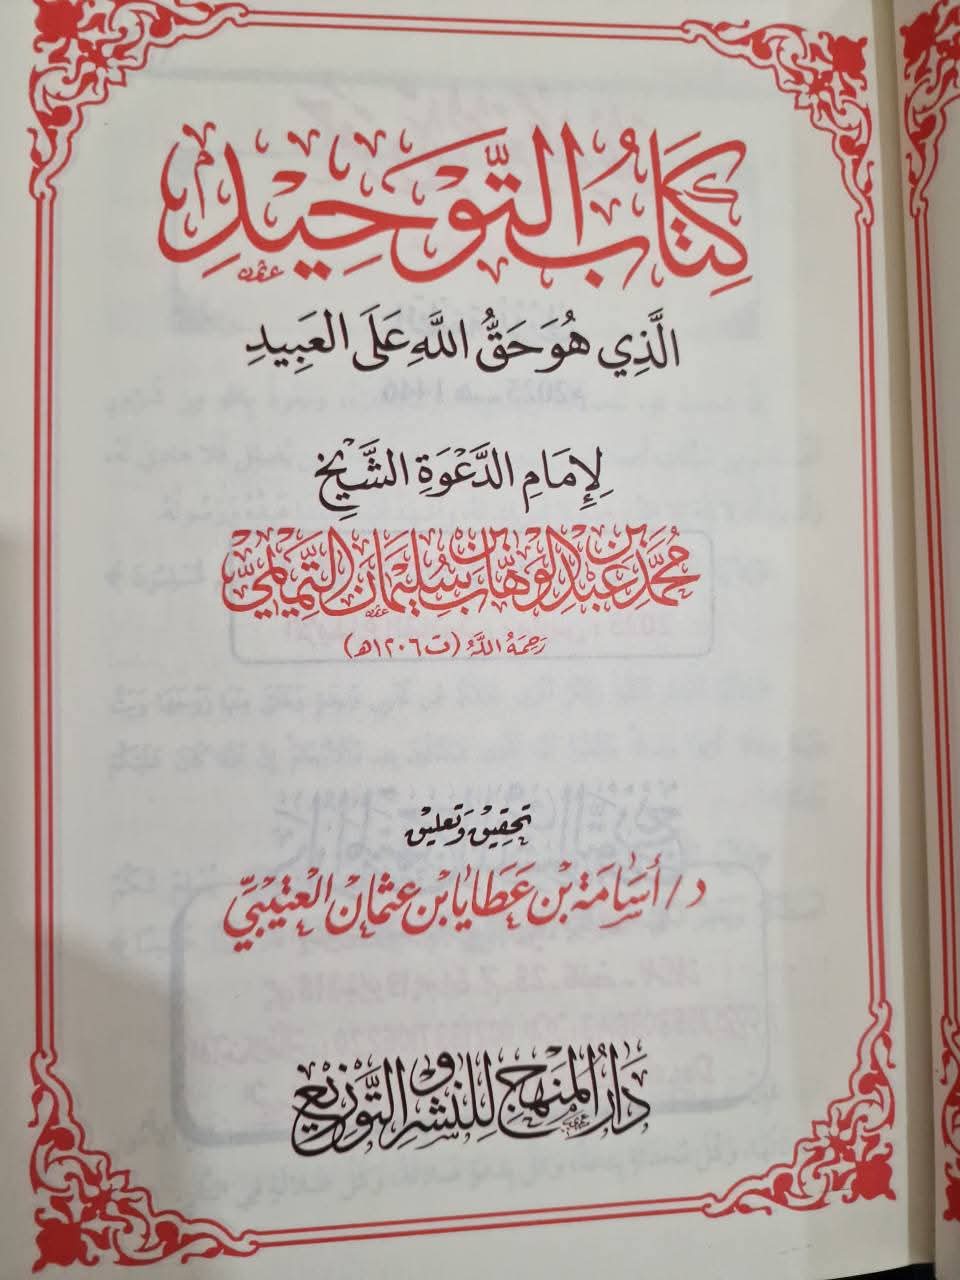 كِتَابُ التَّوْحِيدِ
الَّذِي هُوَ حَقُّ اللَّهِ عَلَى العَبِيدِ
لِإِمَامِ الدَّعْوَةِ الشَّيْخِ
مُحَمَّدِ بْنِ عَبْدِ الوَهَّابِ بْنِ سُلَيْمَانَ التَّمِيمِيِّ
رَحِمَهُ اللَّهُ (ت ١٢٠٦هـ)
تحقِيق وَتعليق
د/ أُسَامَة بْن عَطَايَا بْن عثْمَان العتيبيّ
دَارُ المِنْهَاجِ لِلنَّشْرِ وَالتَّوْزِيعِ